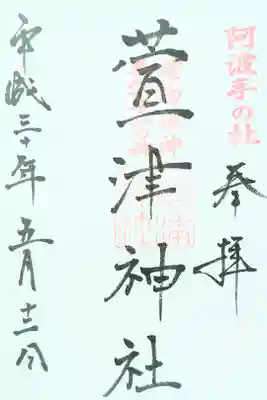 阿波手の社
奉拝
萱津神社
平成三十年五月十三日